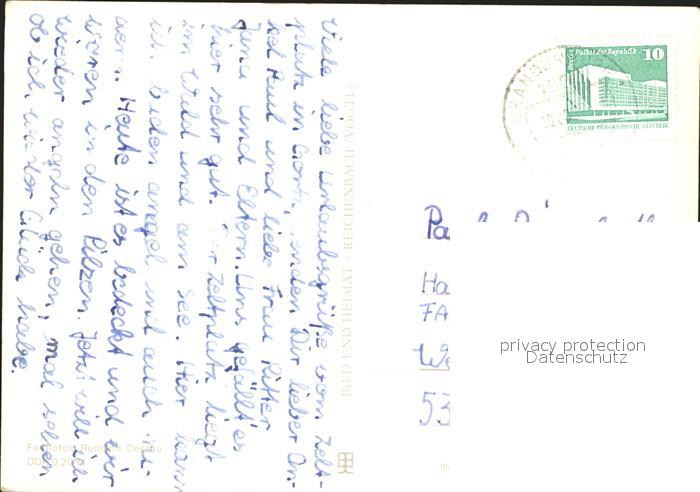 Viele liebe Urlaubsgrüße vom Zelt-
platz in senden Dir lieber On-
kel Paul und liebe Frau Ritter
und Eltern. Uns gefällt es
hier sehr gut. Der Zeltplatz liegt
im Wald und am See. Hier kann
ich baden angel und auch
Heute ist es bedeckt und wir
waren in den Pilzen. Jetzt will ich
wieder angeln gehen, mal sehen
ob ich wieder Glück habe.
BILD UND HEIMAT · REICHENBACH (VOGTL)
Berlin Palast der Republik 10
DEUTSCHE DEMOKRATISCHE REPUBLIK
BRANDEN
Pa
Ha
FA
We
53
privacy protection
Datenschutz